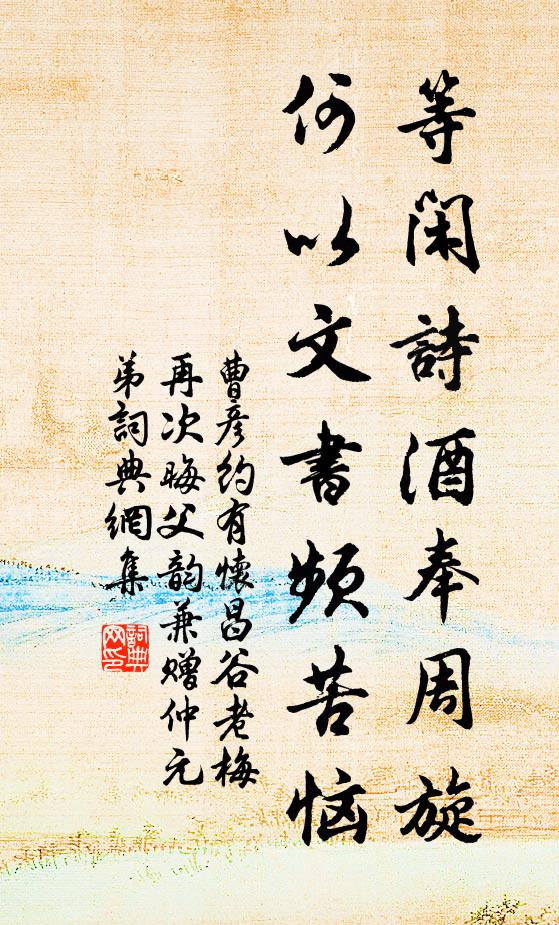 等閑詩酒奉周旋
何以文書頻苦惱
曹彥約有懷昌谷老梅
再次晦父韵兼贈仲元
弟詞典網集
詞典
网印